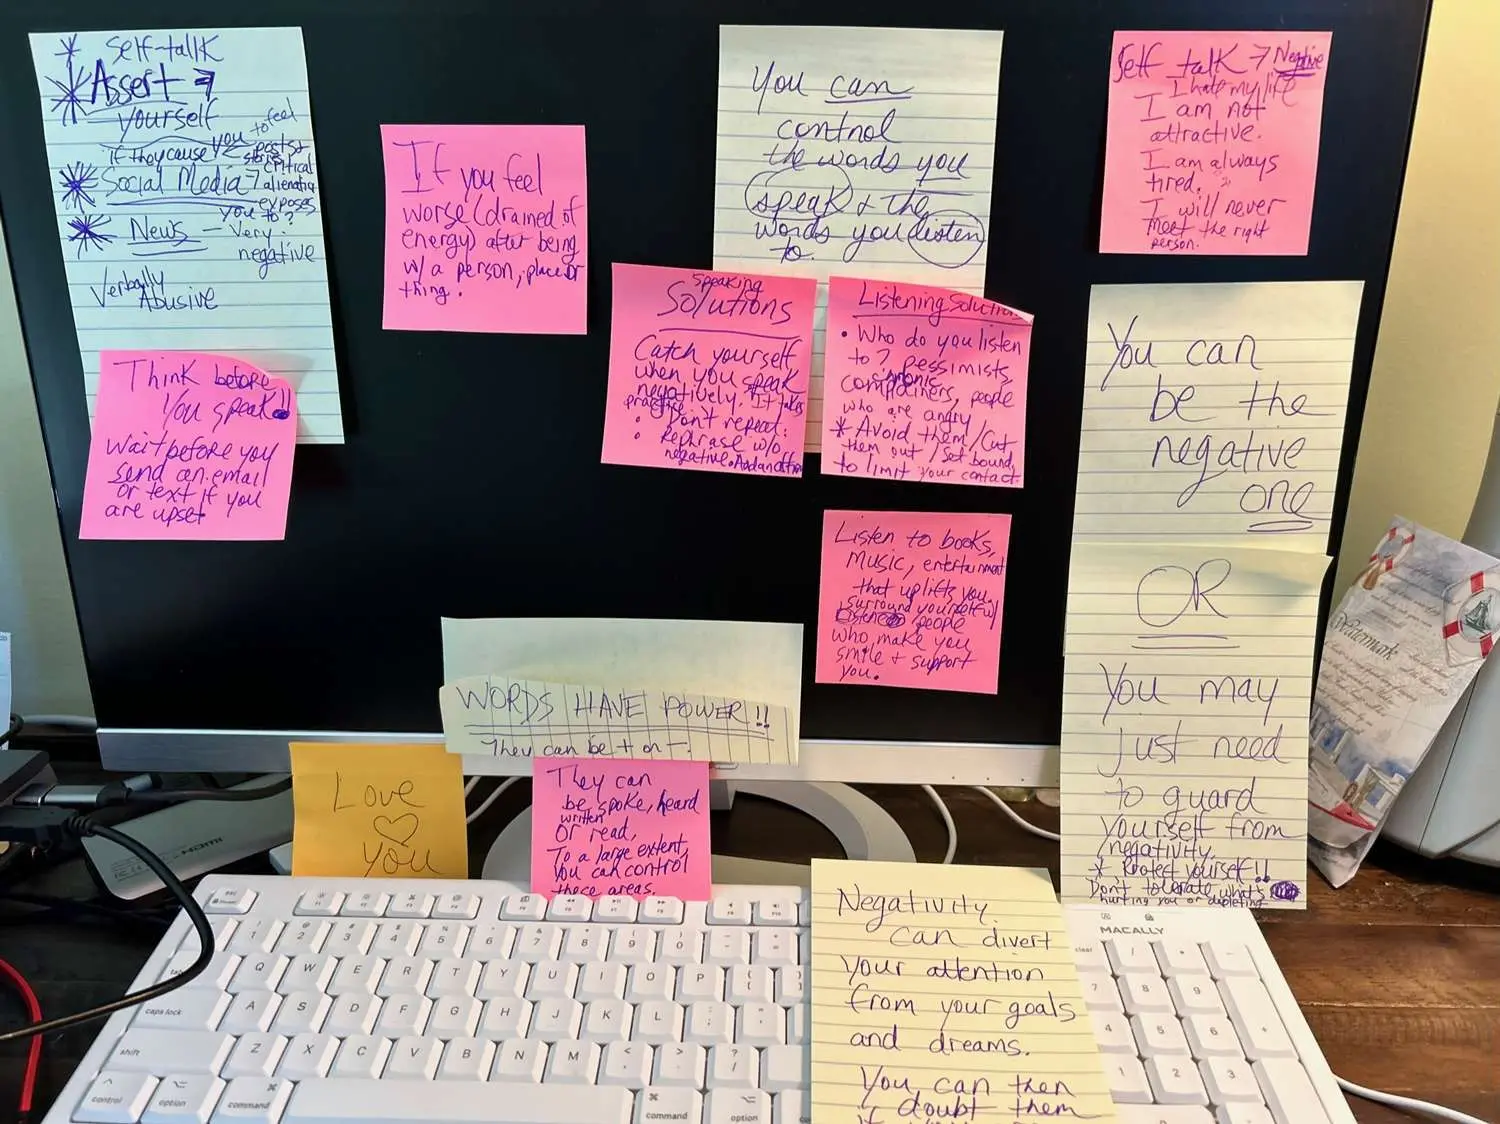 * Self-talk
* Assert →
yourself
if they cause you to feel
* Social Media → posts &
stories
critical
alienating
exposes
you to?
* News — Very
negative
Verbally
Abusive
Think before
You speak!!
Wait before you
send an email
or text if you
are upset
If you feel
worse (drained of
energy) after being
w/ a person, place or
thing.
You can
control
the words you
speak & the
words you listen
to.
Speaking
Solutions
Catch yourself
when you speak
negatively. It takes
practice
• Don't repeat.
• Rephrase w/o
negative.
Listening Solutions
• Who do you listen
to? pessimists,
chronic
complainers, people
who are angry
* Avoid them/Cut
them out/Set bound.
to limit your contact
Listen to books,
music, entertainment
that uplifts you.
Surround yourself w/
people
who make you
smile + support
you.
Self talk → Negative
I hate my life
I am not
attractive.
I am always
tired.
I will never
meet the right
person.
You can
be the
negative
one
OR
You may
just need
to guard
yourself from
negativity.
* Protect yourself!!
Don't tolerate what's
hurting you or depleting
WORDS HAVE POWER!!
They can be + or -.
Love
♡
you
They can
be spoke, heard
written
or read,
To a large extent,
you can control
these areas.
Negativity
can divert
your attention
from your goals
and dreams.
You can then
doubt them
Watermark
HDMI
MACALLY
esc
F1 F2 F3 F4 F5 F6 F7 F8
1 2 3 4 5 6 7 8 9 0 - =
Q W E R T Y U I O P
caps lock A S D F G H J K L
shift Z X C V B N M < > ?
control option command command option
clear / * -
7 8 9
4 5 6 +
1 2 3